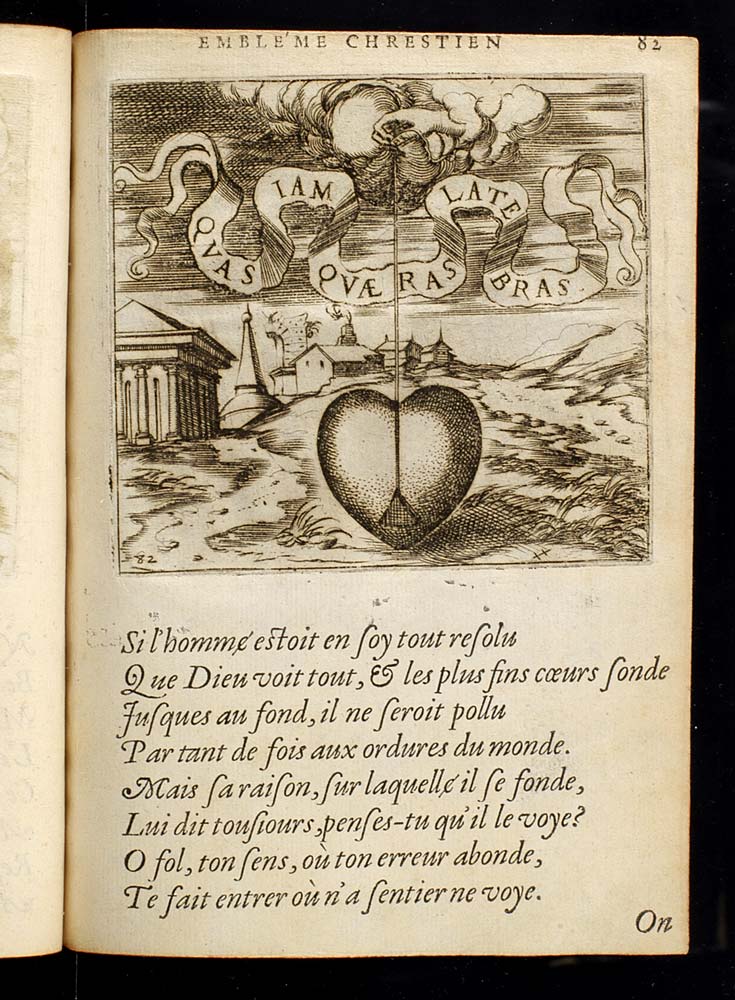 EMBLE'ME CHRESTIEN 82
QVAS IAM QVÆRAS LATEBRAS
82
Si l'homme eſtoit en ſoy tout reſolu
Que Dieu voit tout, & les plus fins cœurs ſonde
Juſques au fond, il ne ſeroit pollu
Par tant de fois aux ordures du monde.
Mais ſa raiſon, ſur laquelle il ſe fonde,
Lui dit touſiours, penſes-tu qu'il le voye?
O fol, ton ſens, où ton erreur abonde,
Te fait entrer où n'a ſentier ne voye.
On